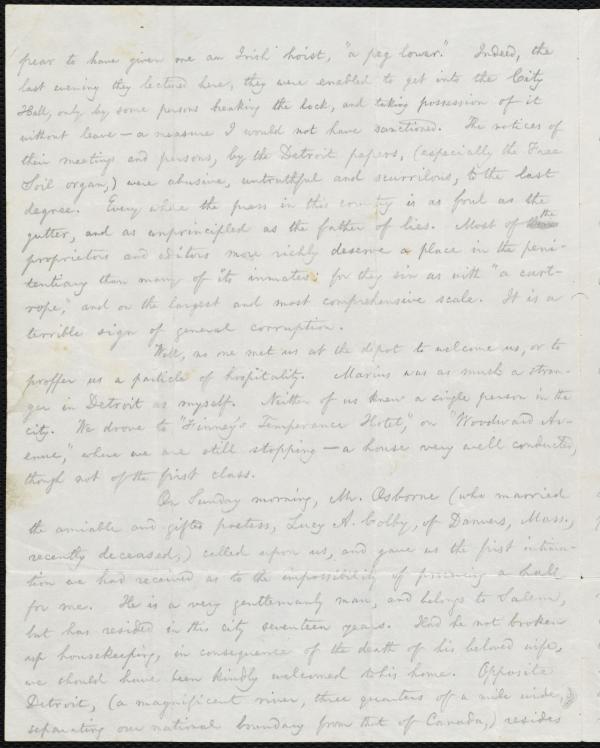 pear to have given one an Irish hoist, "a peg lower." Indeed, the
last evening they lectured here, they were enabled to get into the City
Hall, only by some persons breaking the lock, and taking possession of it
without leave — a measure I would not have sanctioned. The notices of
their meetings and persons, by the Detroit papers, (especially the Free
Soil organ,) were abusive, untruthful and scurrilous, to the last
degree. Every where the press in this country is as foul as the
gutter, and as unprincipled as the father of lies. Most of the
proprietors and editors more richly deserve a place in the peni-
tentiary than many of its inmates; for they sin as with "a cart-
rope," and on the largest and most comprehensive scale. It is a
terrible sign of general corruption.
Well, no one met us at the depot to welcome us, or to
proffer us a particle of hospitality. Marius was as much a stran-
ger in Detroit as myself. Neither of us knew a single person in the
city. We drove to "Finney's Temperance Hotel," on "Woodward Av-
enue," where we are still stopping — a house very well conducted,
though not of the first class.
On Sunday morning, Mr. Osborne (who married
the amiable and gifted poetess, Lucy A. Colby, of Danvers, Mass.,
recently deceased,) called upon us, and gave us the first intima-
tion we had received as to the impossibility of procuring a hall
for me. He is a very gentlemanly man, and belongs to Salem,
but has resided in this city seventeen years. Had he not broken
up housekeeping, in consequence of the death of his beloved wife,
we should have been kindly welcomed to his home. Opposite
Detroit, (a magnificent river, three quarters of a mile wide,
separating our national boundary from that of Canada,) resides